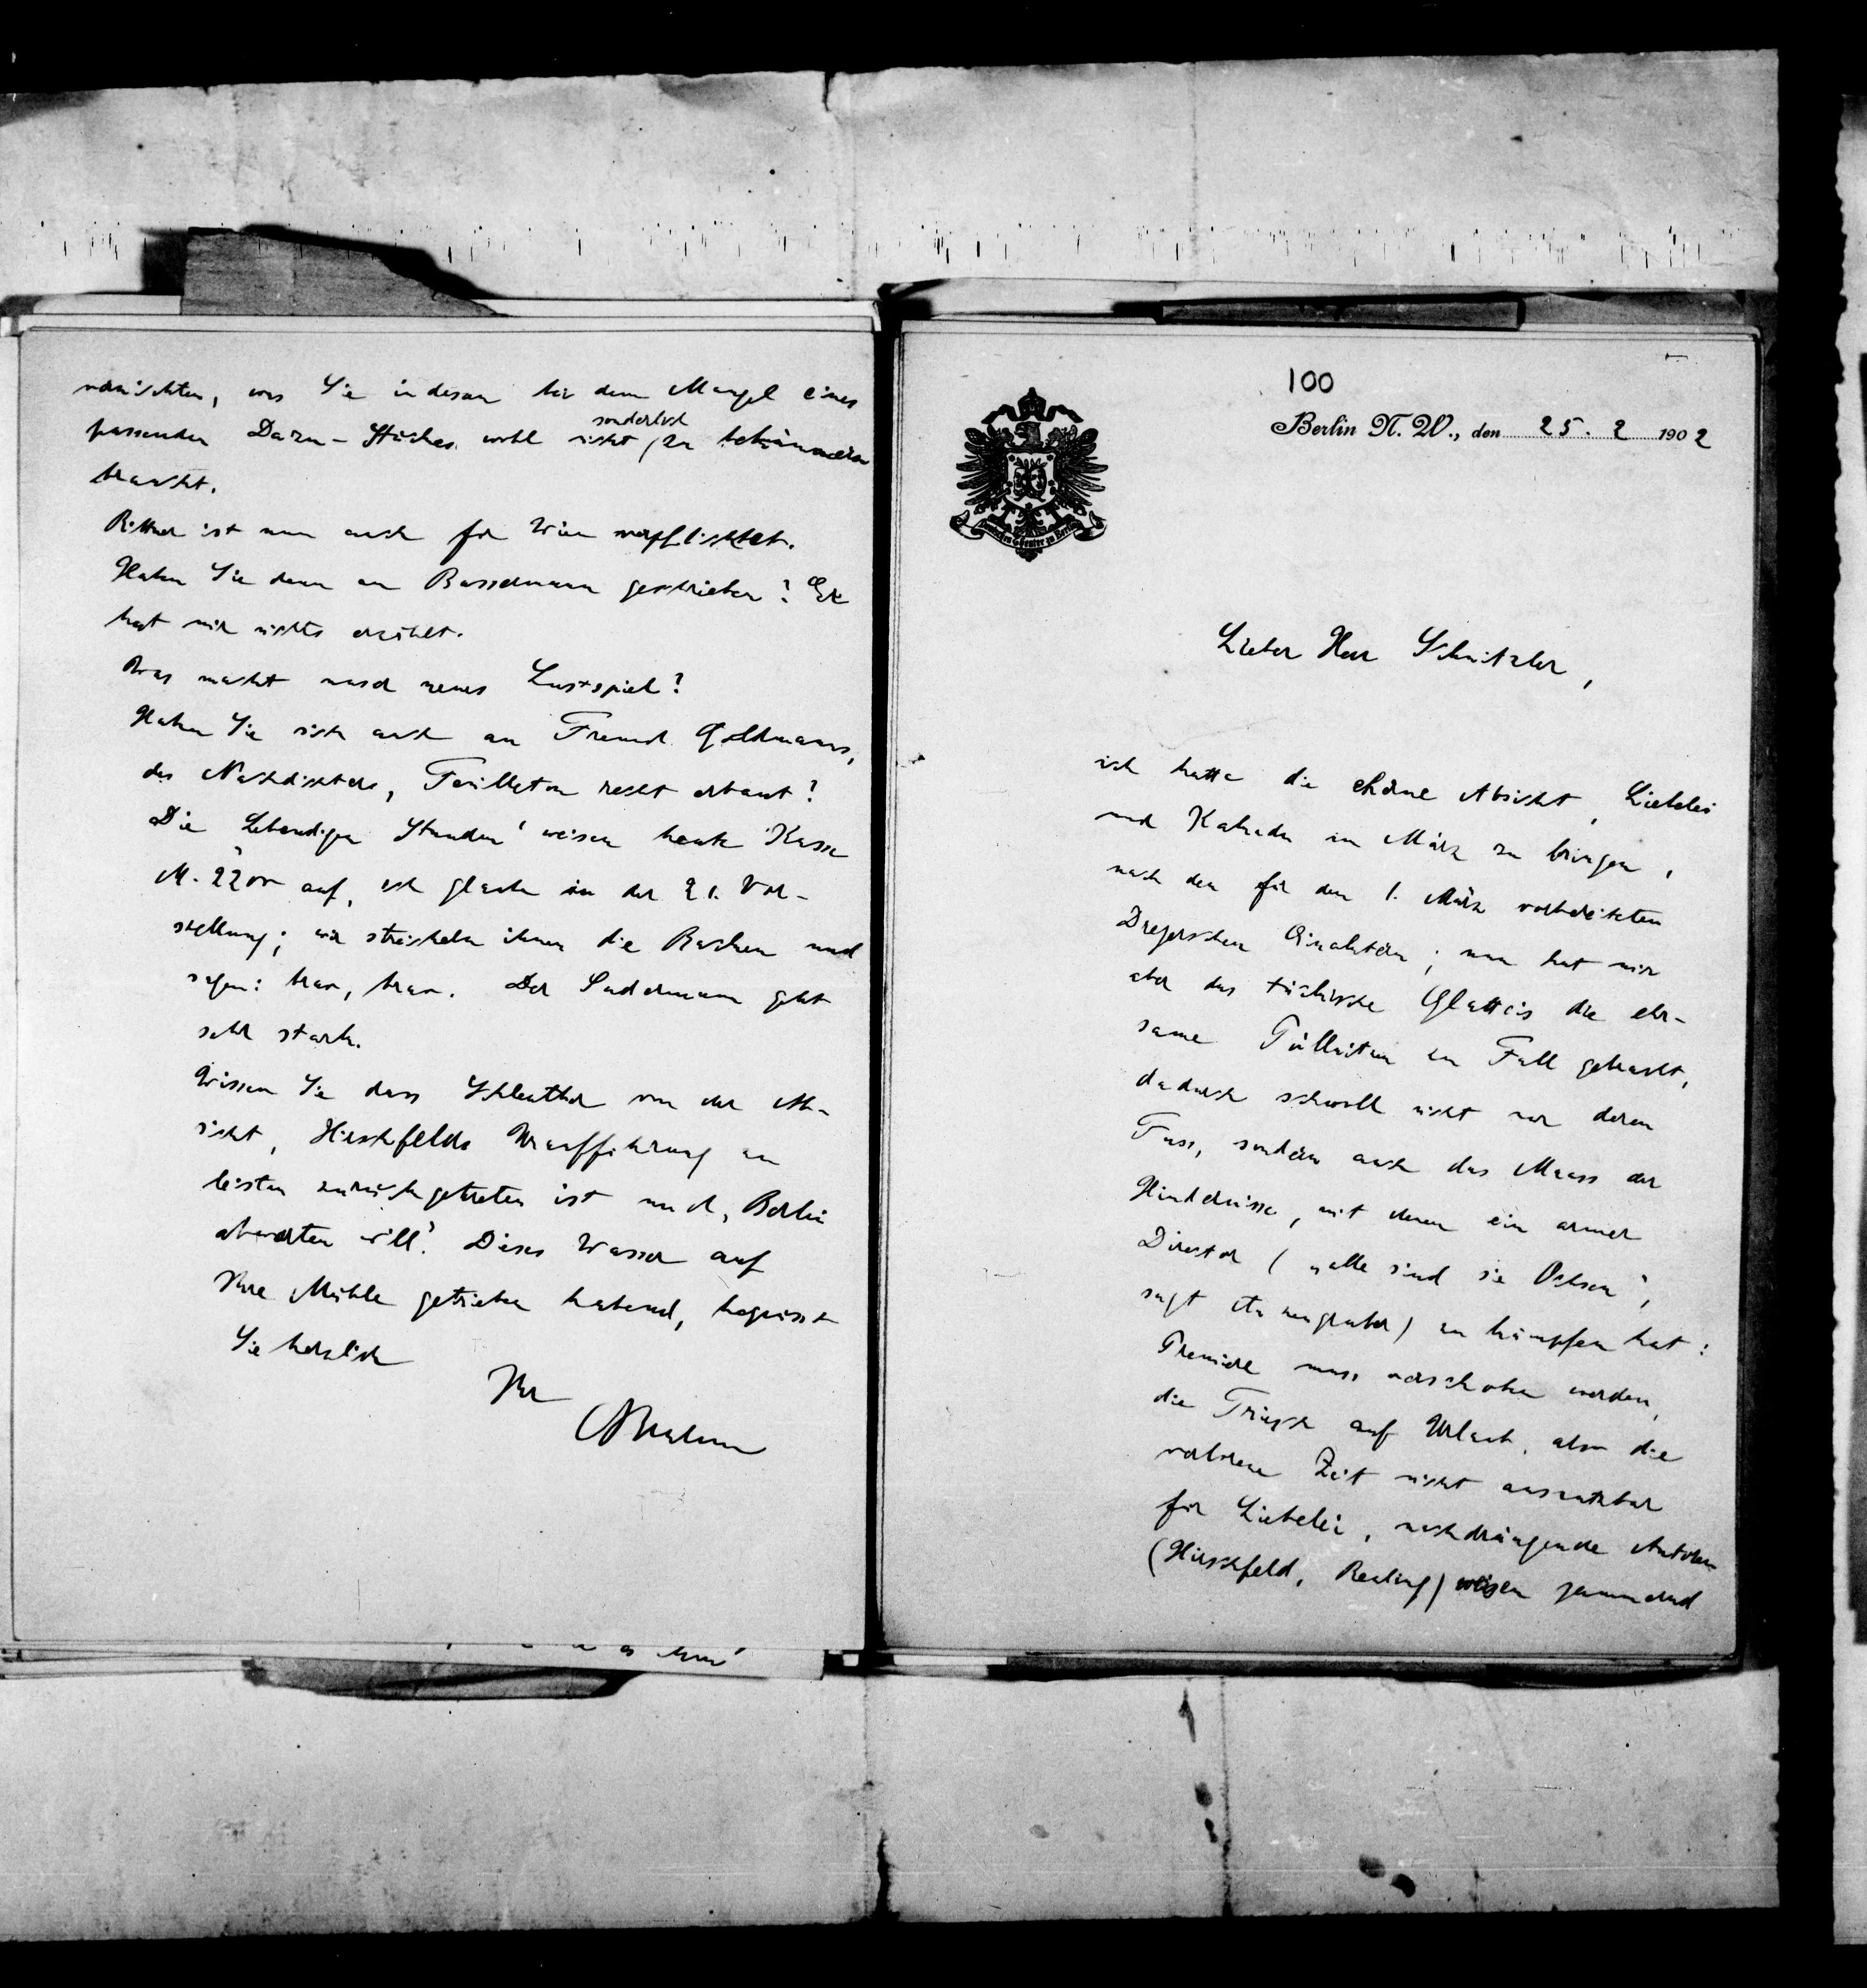 vernichten, was Sie indessen bei dem Mangel eines
sonderlich
passenden Dazu-Stückes wohl nicht zu bekümmern
braucht.
Rittner ist nun auch für Wien verpflichtet.
Haben Sie denn an Bassermann geschrieben? Er
hat mir nichts erzählt.
Was macht unser neues Lustspiel?
Haben Sie sich auch an Freund Goldmanns,
des Nachdichters, Feuilleton recht erbaut?
Die „Lebendigen Stunden" weisen heute Kasse
M. 2200 auf, ich glaube in der 21. Vor-
stellung; wir streicheln ihnen die Backen und
sagen: brav, brav. Der Sudermann geht
sehr stark.
Wissen Sie dass Schlenther von der Ab-
sicht, Hirschfelds Uraufführung zu
leisten zurückgetreten ist und „Berlin
abwarten will"? Dieses Wasser auf
Ihre Mühle getrieben habend, begrüsst
Sie herzlich
Ihr
OBrahm
100
Deutsches Theater zu Berlin
Berlin N. W., den 25. 2 1902
Lieber Herr Schnitzler,
ich hatte die schöne Absicht, Liebelei
und Kakadu im März zu bringen,
nach den für den 1. März vorbereiteten
Dreyerschen Einaktern; nun hat mir
aber das tückische Glatteis die ehr-
same Füllnitien zu Fall gebracht,
dadurch schwoll nicht nur deren
Fuss, sondern auch das Maass der
Hindernisse, mit denen ein armer
Director („alle sind sie Ochsen",
sagt Anzengruber) zu kämpfen hat:
Premiere muss verschoben werden,
die Triesch auf Urlaub, also die
verlorene Zeit nicht ausnutzbar
für Liebelei, nachdrängende Autoren
(Hirschfeld, Reuling) weisen jammernd